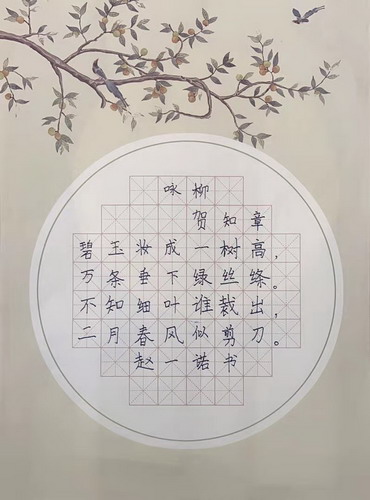 咏柳
贺知章
碧玉妆成一树高，
万条垂下绿丝绦。
不知细叶谁裁出，
二月春风似剪刀。
赵一诺书